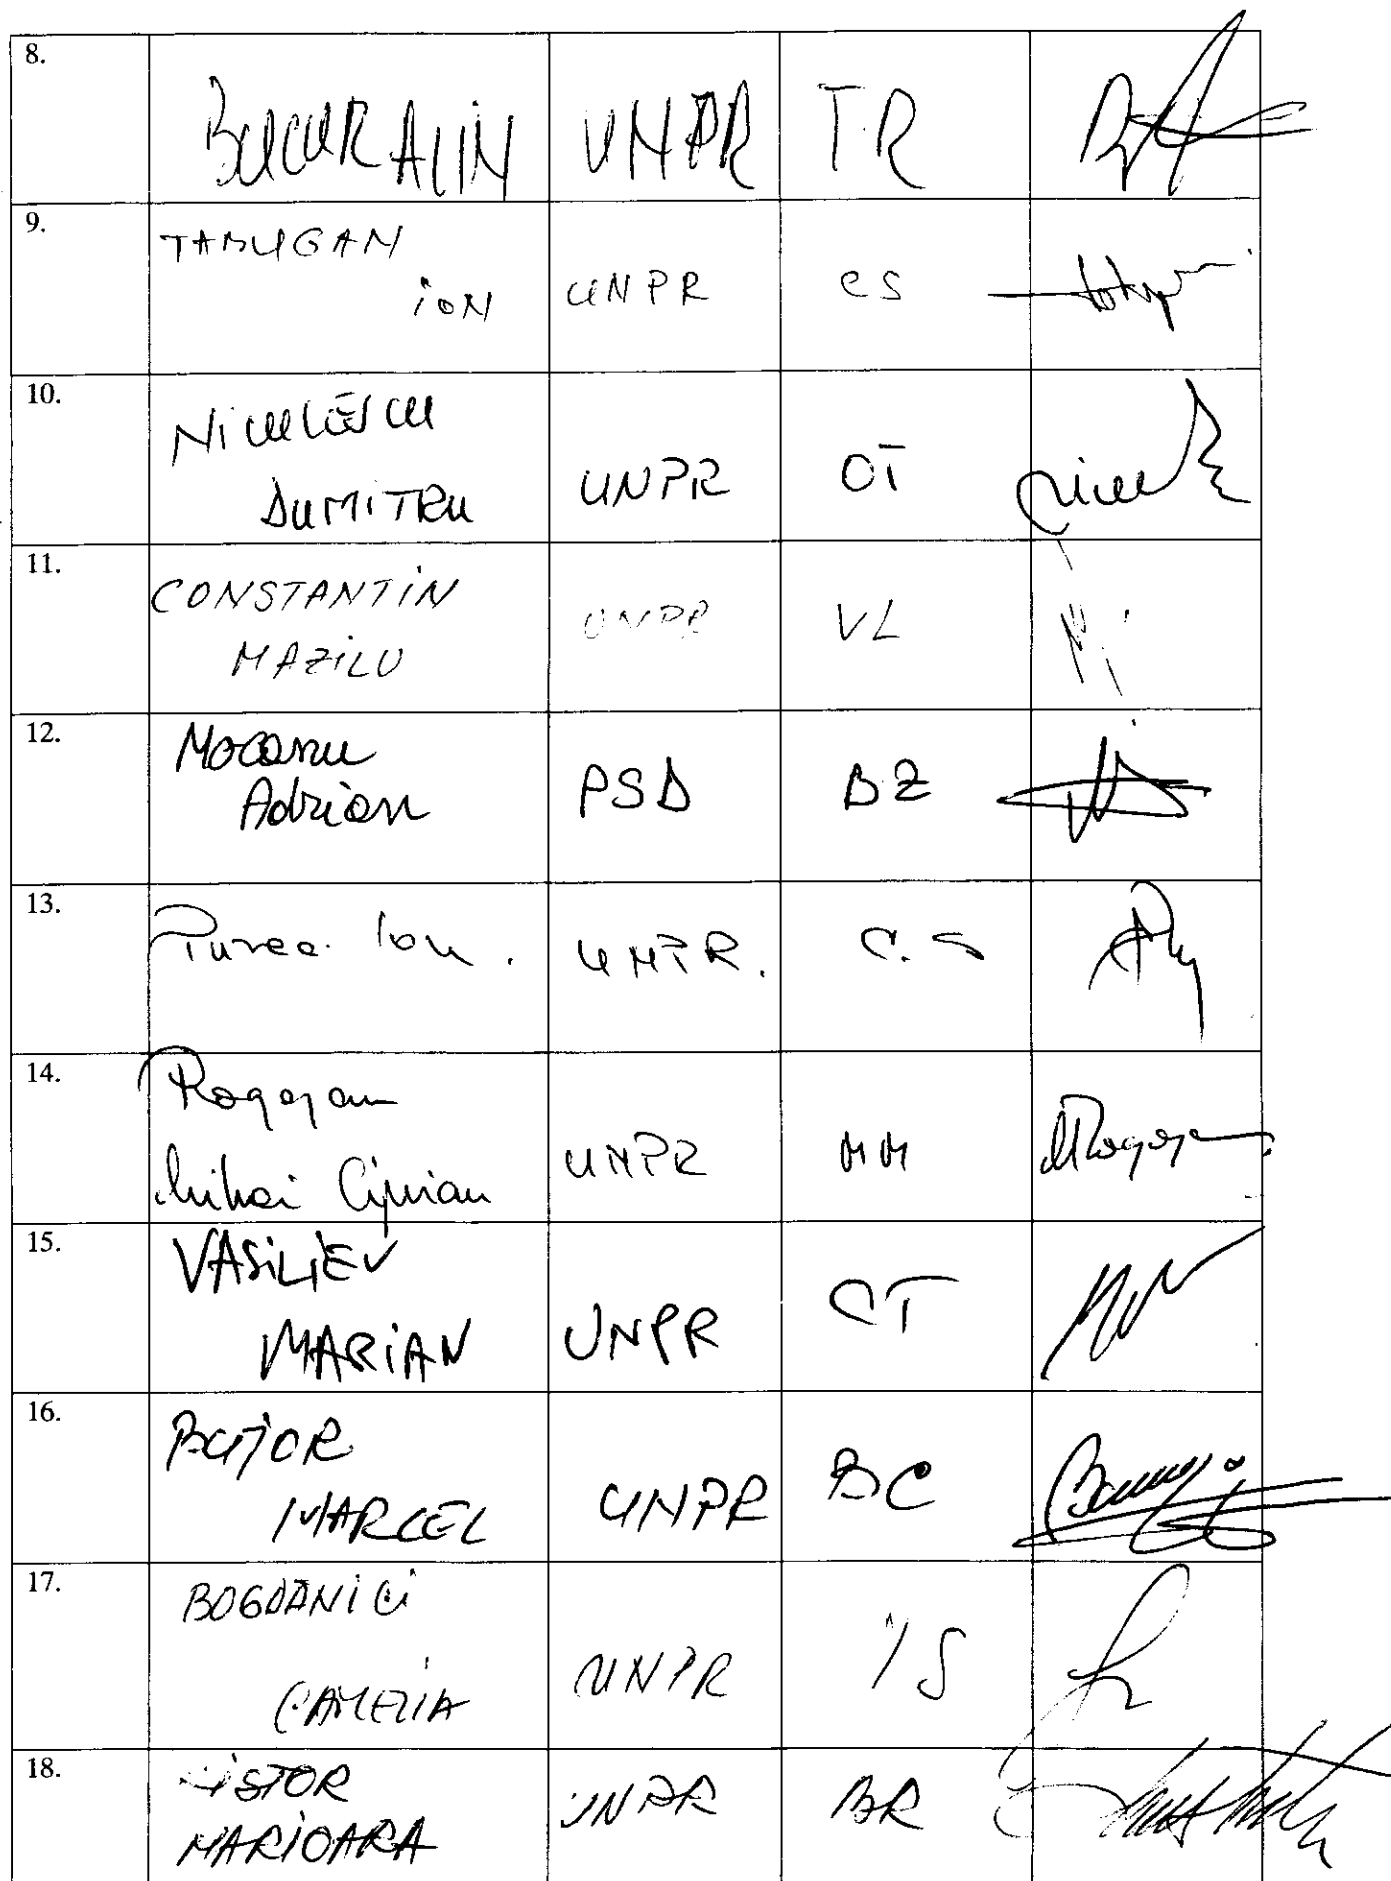 8.
BUCUR ALIN UNPR TR
9.
TABUGAN
ION UNPR CS
10.
NICULESCU
DUMITRU UNPR OT
11.
CONSTANTIN
MAZILU UNPR VL
12.
Mocanu
Adrian PSD BZ
13.
Ion. UNPR. C.S
14.
Rogojan
Mihai Ciprian UNPR MM
15.
VASILIEV
MARIAN UNPR CT
16.
BUJOR
MARCEL UNPR BC
17.
BOGDANICI
CAMELIA UNPR IS
18.
NISTOR
MARIOARA UNPR BR